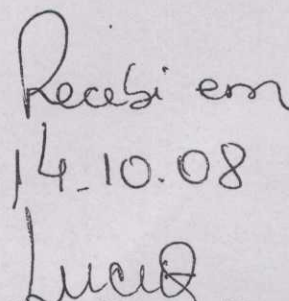 Recebi em
14.10.08
Lucia